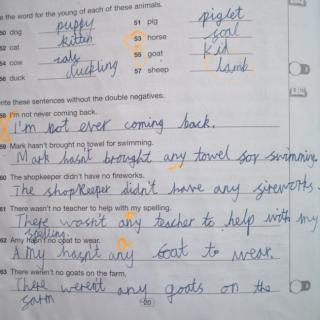 e the word for the young of each of these animals.
50 dog puppy 51 pig piglet
52 cat kitten 53 horse foal
54 cow calf 55 goat kid
56 duck duckling 57 sheep lamb
rite these sentences without the double negatives.
58 I'm not never coming back.
I'm not ever coming back.
59 Mark hasn't brought no towel for swimming.
Mark hasn't brought any towel for swimming.
60 The shopkeeper didn't have no fireworks.
The shopkeeper didn't have any fireworks.
61 There wasn't no teacher to help with my spelling.
There wasn't any teacher to help with my
spelling.
62 Amy hasn't no coat to wear.
Amy hasn't any coat to wear.
63 There weren't no goats on the farm.
There weren't any goats on the
farm